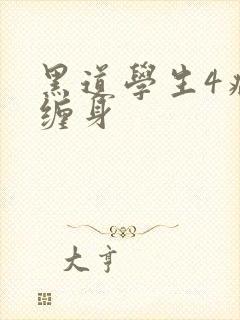 黑道學生4
缠身
大亨